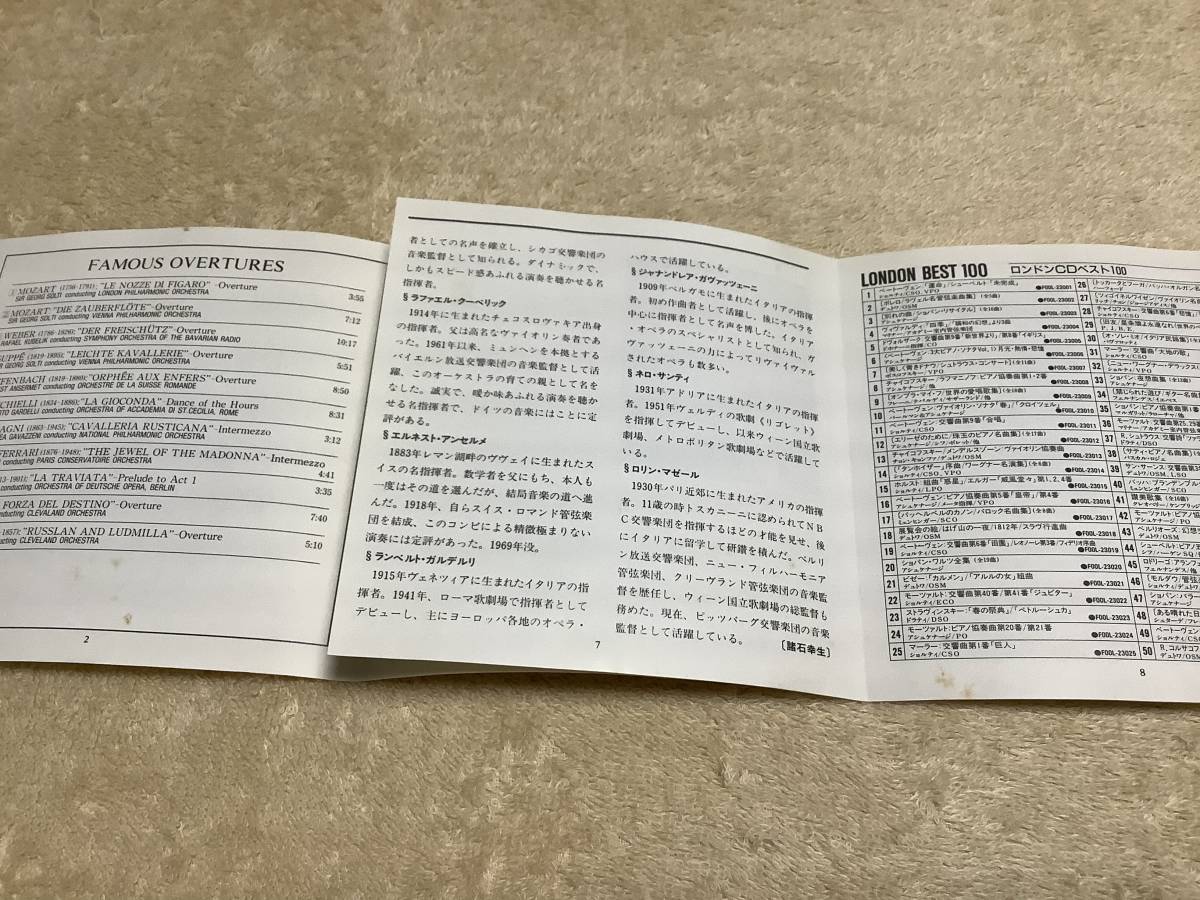 FAMOUS OVERTURES
① MOZART (1756-1791); "LE NOZZE DI FIGARO"–Overture
SIR GEORG SOLTI conducting LONDON PHILHARMONIC ORCHESTRA 3:55
② MOZART "DIE ZAUBERFLÖTE"–Overture
SIR GEORG SOLTI conducting VIENNA PHILHARMONIC ORCHESTRA 7:12
WEBER (1786-1826); "DER FREISCHÜTZ"–Overture
RAFAEL KUBELIK conducting SYMPHONY ORCHESTRA OF THE BAVARIAN RADIO 10:17
UPPÉ (1819-1895); "LEICHTE KAVALLERIE"–Overture
GEORG SOLTI conducting VIENNA PHILHARMONIC ORCHESTRA 5:51
FENBACH (1819-1880); "ORPHÉE AUX ENFERS"–Overture
ST ANSERMET conducting ORCHESTRE DE LA SUISSE ROMANDE 8:50
CHIELLI (1834-1886); "LA GIOCONDA"–Dance of the Hours
TO GARDELLI conducting ORCHESTRA OF ACCADEMIA DI ST.CECILIA, ROME 8:31
AGNI (1863-1945); "CAVALLERIA RUSTICANA"–Intermezzo
EA GAVAZZENI conducting NATIONAL PHILHARMONIC ORCHESTRA 3:12
FERRARI (1876-1948); "THE JEWEL OF THE MADONNA"–Intermezzo
cting PARIS CONSERVATOIRE ORCHESTRA 4:41
13-1901); "LA TRAVIATA"–Prelude to Act 1
ducting ORCHESTRA OF DEUTSCHE OPERA, BERLIN 3:35
FORZA DEL DESTINO"–Overture
ducting CLEVELAND ORCHESTRA 7:40
1857); "RUSSLAN AND LUDMILLA"–Overture
ducting CLEVELAND ORCHESTRA 5:10
2
者としての名声を確立し、シカゴ交響楽団の
音楽監督として知られる。ダイナミックで、
しかもスピード感あふれる演奏を聴かせる名
指揮者。
§ ラファエル・クーベリック
1914年に生まれたチェコスロヴァキア出身
の指揮者。父は高名なヴァイオリン奏者であ
った。1961年以来、ミュンヘンを本拠とする
バイエルン放送交響楽団の音楽監督として活
躍、このオーケストラの育ての親として名を
なした。誠実で、暖か味あふれる演奏を聴か
せる名指揮者で、ドイツの音楽にはことに定
評がある。
§ エルネスト・アンセルメ
1883年レマン湖畔のヴヴェイに生まれたス
イスの名指揮者。数学者を父にもち、本人も
一度はその道を選んだが、結局音楽の道へ進
んだ。1918年、自らスイス・ロマンド管弦楽
団を結成、このコンビによる精微極まりない
演奏には定評があった。1969年没。
§ ランベルト・ガルデルリ
1915年ヴェネツィアに生まれたイタリアの指
揮者。1941年、ローマ歌劇場で指揮者として
デビューし、主にヨーロッパ各地のオペラ・
ハウスで活躍している。
§ ジャナンドレア・ガヴァッツェーニ
1909年ベルガモに生まれたイタリアの指揮
者。初め作曲者として活躍し、後にオペラを
中心に指揮者として名声を博した。イタリア
・オペラのスペシャリストとして知られ、ガ
ヴァッツェーニの力によってリヴァイヴァル
されたオペラも数多い。
§ ネロ・サンティ
1931年アドリアに生まれたイタリアの指揮
者。1951年ヴェルディの歌劇《リゴレット》
を指揮してデビューし、以来ウィーン国立歌
劇場、メトロポリタン歌劇場などで活躍して
いる。
§ ロリン・マゼール
1930年パリ近郊に生まれたアメリカの指揮
者。11歳の時トスカニーニに認められてNB
C交響楽団を指揮するほどの才能を見せ、後
にイタリアに留学して研鑽を積んだ。ベルリ
ン放送交響楽団、ニュー・フィルハーモニア
管弦楽団、クリーヴランド管弦楽団の音楽監
督を歴任し、ウィーン国立歌劇場の総監督も
務めた。現在、ピッツバーグ交響楽団の音楽
監督として活躍している。
〔諸石幸生〕
7
LONDON BEST 100 ロンドンCDベスト100
1 ベートーヴェン「運命」/シューベルト「未完成」 ●F00L-23001
ショルティ/CSO,VPO
2 [ボレロ/ラヴェル名管弦楽曲集](全5曲) ●F00L-23002
デュトワ/OSM
3 [別れの曲/ショパン・リサイタル] ●F00L-23003
アシュケナージ
4 ヴィヴァルディ「四季」/「調和の幻想」より3曲 ●F00L-23004
5 ドヴォルザーク:交響曲第9番「新世界より」/第8番「イギリス」 ●F00L-23005
6 [ベートーヴェン:3大ピアノ・ソナタVol.1]月光・熱情・悲愴 ●F00L-23006
7 [美しく青きドナウ/シュトラウス・コンサート](全11曲) ●F00L-23007
ボスコフスキー/VPO
8 チャイコフスキー/ラフマニノフ:ピアノ協奏曲1・2番 ●F00L-23008
9 [オンブラ・マイ・フ/世界の愛唱歌集] ●F00L-23009
10 ベートーヴェン:ヴァイオリン・ソナタ「春」/「クロイツェル」 ●F00L-23010
11 ベートーヴェン:交響曲第9番「合唱」 ●F00L-23011
12 [エリーゼのために/珠玉のピアノ名曲集](全17曲) ●F00L-23012
13 チャイコフスキー/メンデルスゾーン:ヴァイオリン協奏曲 ●F00L-23013
チョン・キョンファ/デュトワ/OSM
14 [「タンホイザー」序曲/ワーグナー名演集] ●F00L-23014
ショルティ/CSO
15 ホルスト:組曲「惑星」/エルガー「威風堂々」第1,2,4番 ●F00L-23015
ショルティ/LPO
16 ベートーヴェン:ピアノ協奏曲第5番「皇帝」/第4番 ●F00L-23016
アシュケナージ/メータ指揮/VPO
17 [パッヘルベルのカノン/バロック名曲集] ●F00L-23017
ミュンヒンガー/SCO
18 展覧会の絵/はげ山の一夜/1812年/スラヴ行進曲 ●F00L-23018
デュトワ/OSM
19 ベートーヴェン:交響曲第6番「田園」/レオノーレ第3番/フィデリオ序曲 ●F00L-23019
ショルティ/CSO
20 ショパン・ワルツ全集(全19曲) ●F00L-23020
アシュケナージ
21 ビゼー:「カルメン」/「アルルの女」組曲 ●F00L-23021
デュトワ/OSM
22 モーツァルト:交響曲第40番/第41番「ジュピター」 ●F00L-23022
ショルティ/ECO
23 ストラヴィンスキー:「春の祭典」/「ペトルーシュカ」 ●F00L-23023
ドラティ/DSO
24 モーツァルト:ピアノ協奏曲第20番/第21番 ●F00L-23024
アシュケナージ/PO
25 マーラー:交響曲第1番「巨人」 ●F00L-23025
ショルティ/CSO
26
27
28
29
30
31 マーラー:交響曲「大地の歌」
32
33 ショパン:夜想曲集
34
35 ショパン:ピアノ協奏曲第1番
36
37
38
39
40
41
42
43
44
45
46
47
48
49
50
8